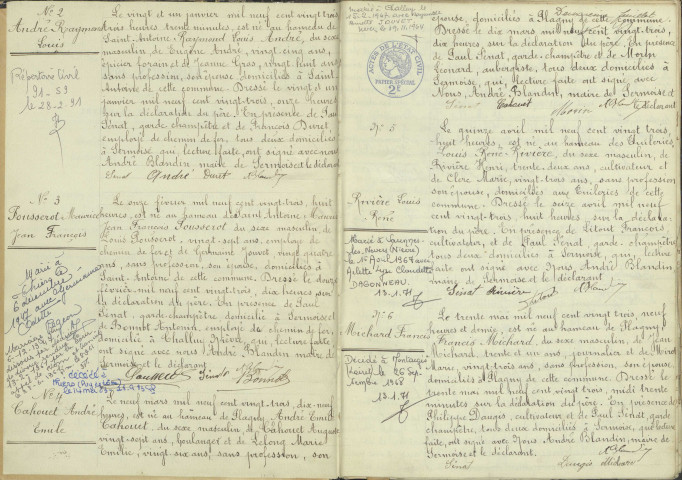 N° 2
André Raymond
Louis
Répertoire Civil
91-59
le 28-2-91
Le vingt et un janvier mil neuf cent vingt trois
trois heures, trente minutes, est né au hameau de
Saint Antoine: Raymond Louis André, du sexe
masculin de Eugène André, vingt cinq ans,
épicier forain et de Jeanne Gros, vingt huit ans
sans profession, son épouse domiciliés à Saint
Antoine de cette commune. Dressé le vingt et un
janvier mil neuf cent vingt trois, onze heures
sur la déclaration du père. En présence de Paul
Sénat, garde champêtre et de François Duret,
employé de chemin de fer, tous deux domiciliés
à Sermoise, qui, lecture faite, ont signé avec nous
André Blandin maire de Sermoise et le déclarant
Sénat André Duret ABlandin
N° 3
Pousserot Maurice
Jean François
Marié à
6 décembre
1947 avec
décédé à
le 14 mai
Le onze février mil neuf cent vingt trois, huit
heures, est né au hameau de Saint Antoine: Maurice
Jean François Pousserot du sexe masculin de
Louis Pousserot, vingt sept ans, employé de
chemin de fer et de Germaine Jouvet, vingt quatre
ans, sans profession, son épouse, domiciliés à
Saint Antoine de cette commune. Dressé le douze
février mil neuf cent vingt trois, heures sur
la déclaration du père. En présence de Paul
Sénat, garde champêtre domicilié à Sermoise et
de Bonnot Antonin, employé de chemin de fer
domicilié à Challuy, qui, lecture faite,
ont signé avec nous André Blandin maire de
Sermoise et le déclarant.
Pousserot Sénat Bonnot
N° 4
Cahouet André
Emile
Le neuf mars mil neuf cent vingt trois, dix neuf
heures, est né au hameau de Plagny André Emile
Cahouet, du sexe masculin, de Cahouet Auguste
vingt sept ans, boulanger et de Lefong Marie
Emilie, vingt six ans, sans profession, son
Marié à Challuy
ACTES DE L'ÉTAT CIVIL
PAPIER SPÉCIAL
2F
épouse, domiciliés à Plagny de cette commune.
Dressé le dix mars mil neuf cent vingt trois,
dix heures sur la déclaration du père, en présence
de Paul Sénat, garde champêtre et de Morin
Léonard, aubergiste, tous deux domiciliés à
Sermoise, qui, lecture faite ont signé avec
Nous, André Blandin, maire de Sermoise et
le déclarant
Sénat Cahouet Morin ABlandin
N° 5
Rivière Louis
René
Marié à Sauvigny
Nevers (Nièvre)
le 1er Août 1969 avec
Arlette Claudette
DAGONNEAU.
13.1.71
Le quinze avril mil neuf cent vingt trois,
huit heures, est né au hameau des Tuileries,
Louis René Rivière, du sexe masculin, de
Rivière Henri, trente deux ans, cultivateur et
de Clerc Marie, vingt trois ans, sans profession
son épouse, domiciliés aux Tuileries de cette
commune. Dressé le seize avril mil neuf
cent vingt trois, huit heures, sur la déclara-
tion du père. En présence de Litout François,
cultivateur, et de Paul Sénat, garde champêtre
tous deux domiciliés à Sermoise, qui, lecture
faite ont signé avec Nous André Blandin
maire de Sermoise et le déclarant.
Sénat Rivière Litout ABlandin
N° 6
Michard Francis
Décédé à Montargis
(Loiret) le 26 Sep-
tembre 1968
13.1.71
Le trente mai mil neuf cent vingt trois, neuf
heures et demie, est né au hameau de Plagny
Francis Michard, du sexe masculin, de Jean
Michard, trente et un ans, journalier et de
Marie, vingt trois ans, sans profession, son épouse,
domiciliés à Plagny de cette commune. Dressé le
trente mai mil neuf cent vingt trois, midi trente
minutes, sur la déclaration du père. En présence de
Philippe Dauges, cultivateur et de Paul Sénat, garde
champêtre, tous deux domiciliés à Sermoise, qui, lecture
faite, ont signé avec Nous André Blandin, maire de
Sermoise et le déclarant.
Sénat Dauges Michard ABlandin